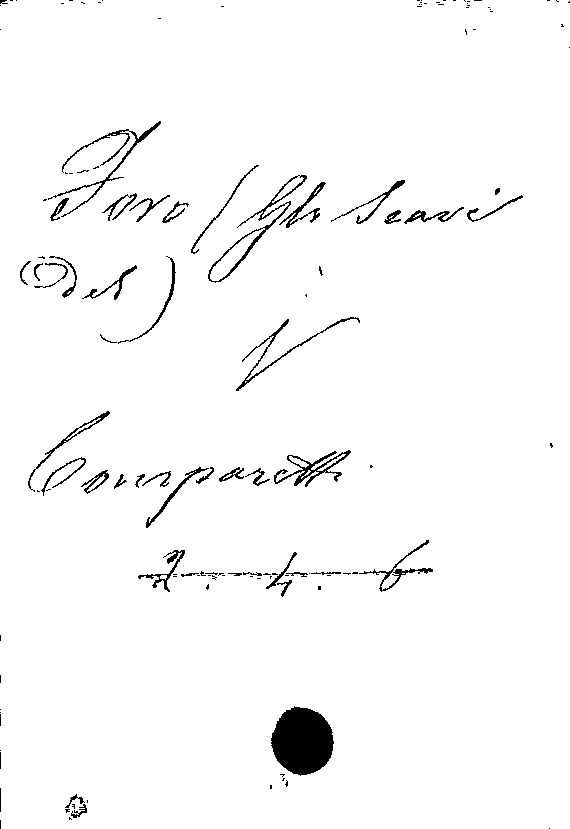 Foro (Gli Scavi
del)
V
Comparetti.
2. 4. 6